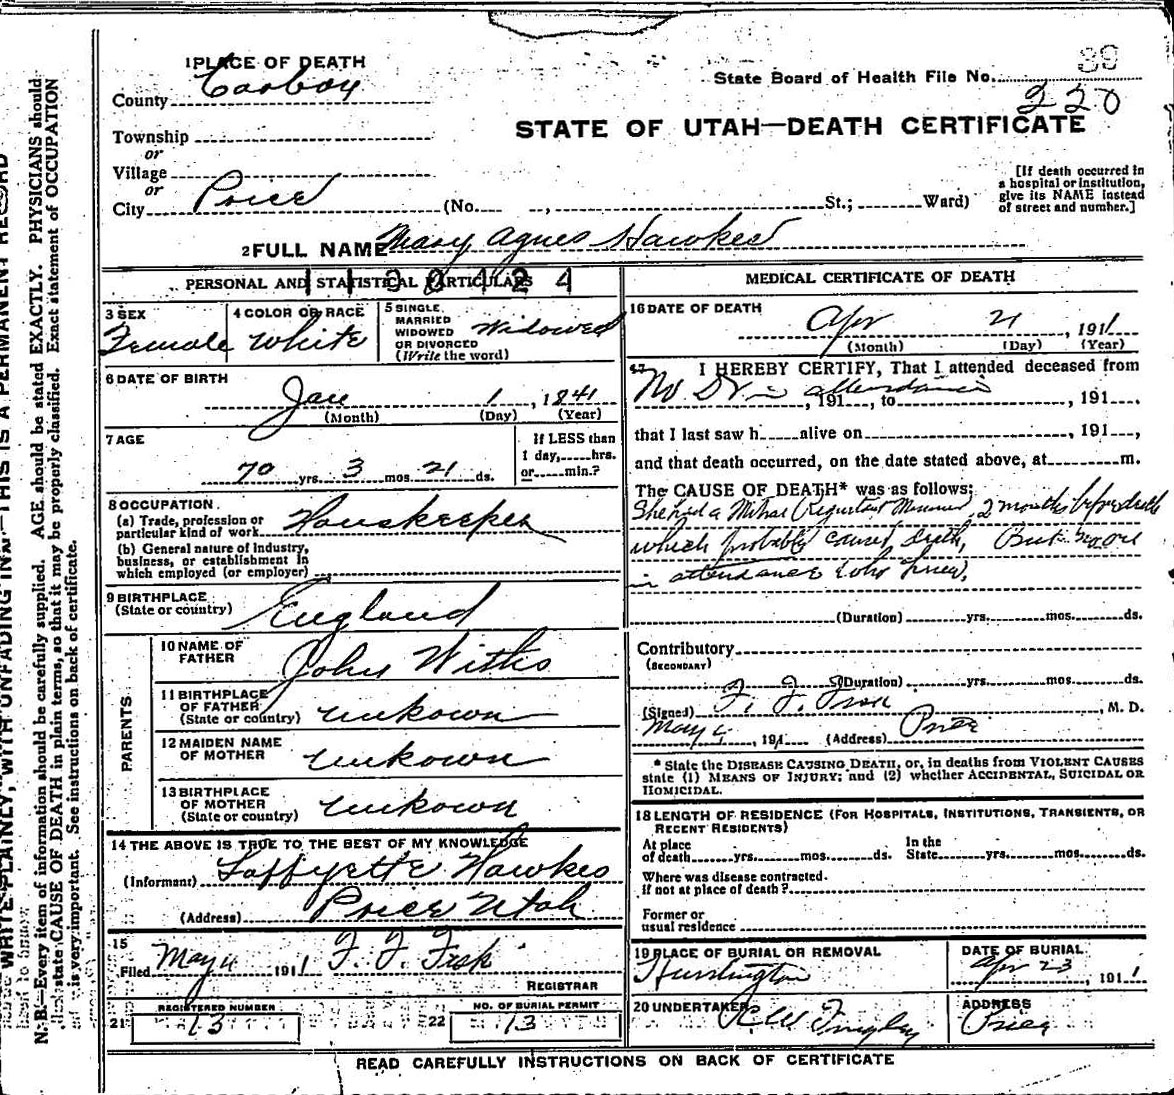 1 PLACE OF DEATH
County Carbon
Township
or
Village
or
City Price (No. , St.; Ward)
State Board of Health File No. 39
220
STATE OF UTAH—DEATH CERTIFICATE
[If death occurred in
a hospital or institution,
give its NAME instead
of street and number.]
2 FULL NAME Mary Agnes Hawkes
PERSONAL AND STATISTICAL PARTICULARS
3 SEX
Female
4 COLOR OR RACE
White
5 SINGLE,
MARRIED
WIDOWED
OR DIVORCED
(Write the word)
Widowed
6 DATE OF BIRTH
Jan 1, 1841
(Month) (Day) (Year)
7 AGE
70 yrs. 3 mos. 21 ds.
If LESS than
1 day, hrs.
or min.?
8 OCCUPATION
(a) Trade, profession or
particular kind of work Houskeeper
(b) General nature of industry,
business, or establishment in
which employed (or employer)
9 BIRTHPLACE
(State or country) England
PARENTS
10 NAME OF
FATHER John
11 BIRTHPLACE
OF FATHER
(State or country) unkown
12 MAIDEN NAME
OF MOTHER unkown
13 BIRTHPLACE
OF MOTHER
(State or country) unkown
14 THE ABOVE IS TRUE TO THE BEST OF MY KNOWLEDGE
(Informant) Laffyette Hawkes
(Address) Price Utah
15
Filed May 4 1911 F. F. Fisk
REGISTRAR
21 REGISTERED NUMBER
13
22 NO. OF BURIAL PERMIT
13
MEDICAL CERTIFICATE OF DEATH
16 DATE OF DEATH
Apr 21, 1911
(Month) (Day) (Year)
17 I HEREBY CERTIFY, That I attended deceased from
No Dr in attendance, 191 , to , 191 ,
that I last saw h alive on , 191 ,
and that death occurred, on the date stated above, at m.
The CAUSE OF DEATH* was as follows:
She had a Mitral Murmur, 2 months before death
which probably caused death, But no one
in attendance
(Duration) yrs. mos. ds.
Contributory
(SECONDARY)
(Duration) yrs. mos. ds.
(Signed) F. F. Fisk, M. D.
May 4, 191 (Address) Price
* State the DISEASE CAUSING DEATH, or, in deaths from VIOLENT CAUSES
state (1) MEANS OF INJURY; and (2) whether ACCIDENTAL, SUICIDAL OR
HOMICIDAL.
18 LENGTH OF RESIDENCE (FOR HOSPITALS, INSTITUTIONS, TRANSIENTS, OR
RECENT RESIDENTS)
At place
of death yrs. mos. ds.
In the
State yrs. mos. ds.
Where was disease contracted.
if not at place of death?
Former or
usual residence
19 PLACE OF BURIAL OR REMOVAL
Huntington
DATE OF BURIAL
Apr 23, 1911
20 UNDERTAKER
ADDRESS
Price
READ CAREFULLY INSTRUCTIONS ON BACK OF CERTIFICATE
WRITE PLAINLY, WITH UNFADING INK—THIS IS A PERMANENT RECORD
N. B.—Every item of information should be carefully supplied. AGE should be stated EXACTLY. PHYSICIANS should
state CAUSE OF DEATH in plain terms, so that it may be properly classified. Exact statement of OCCUPATION
is very important. See instructions on back of certificate.